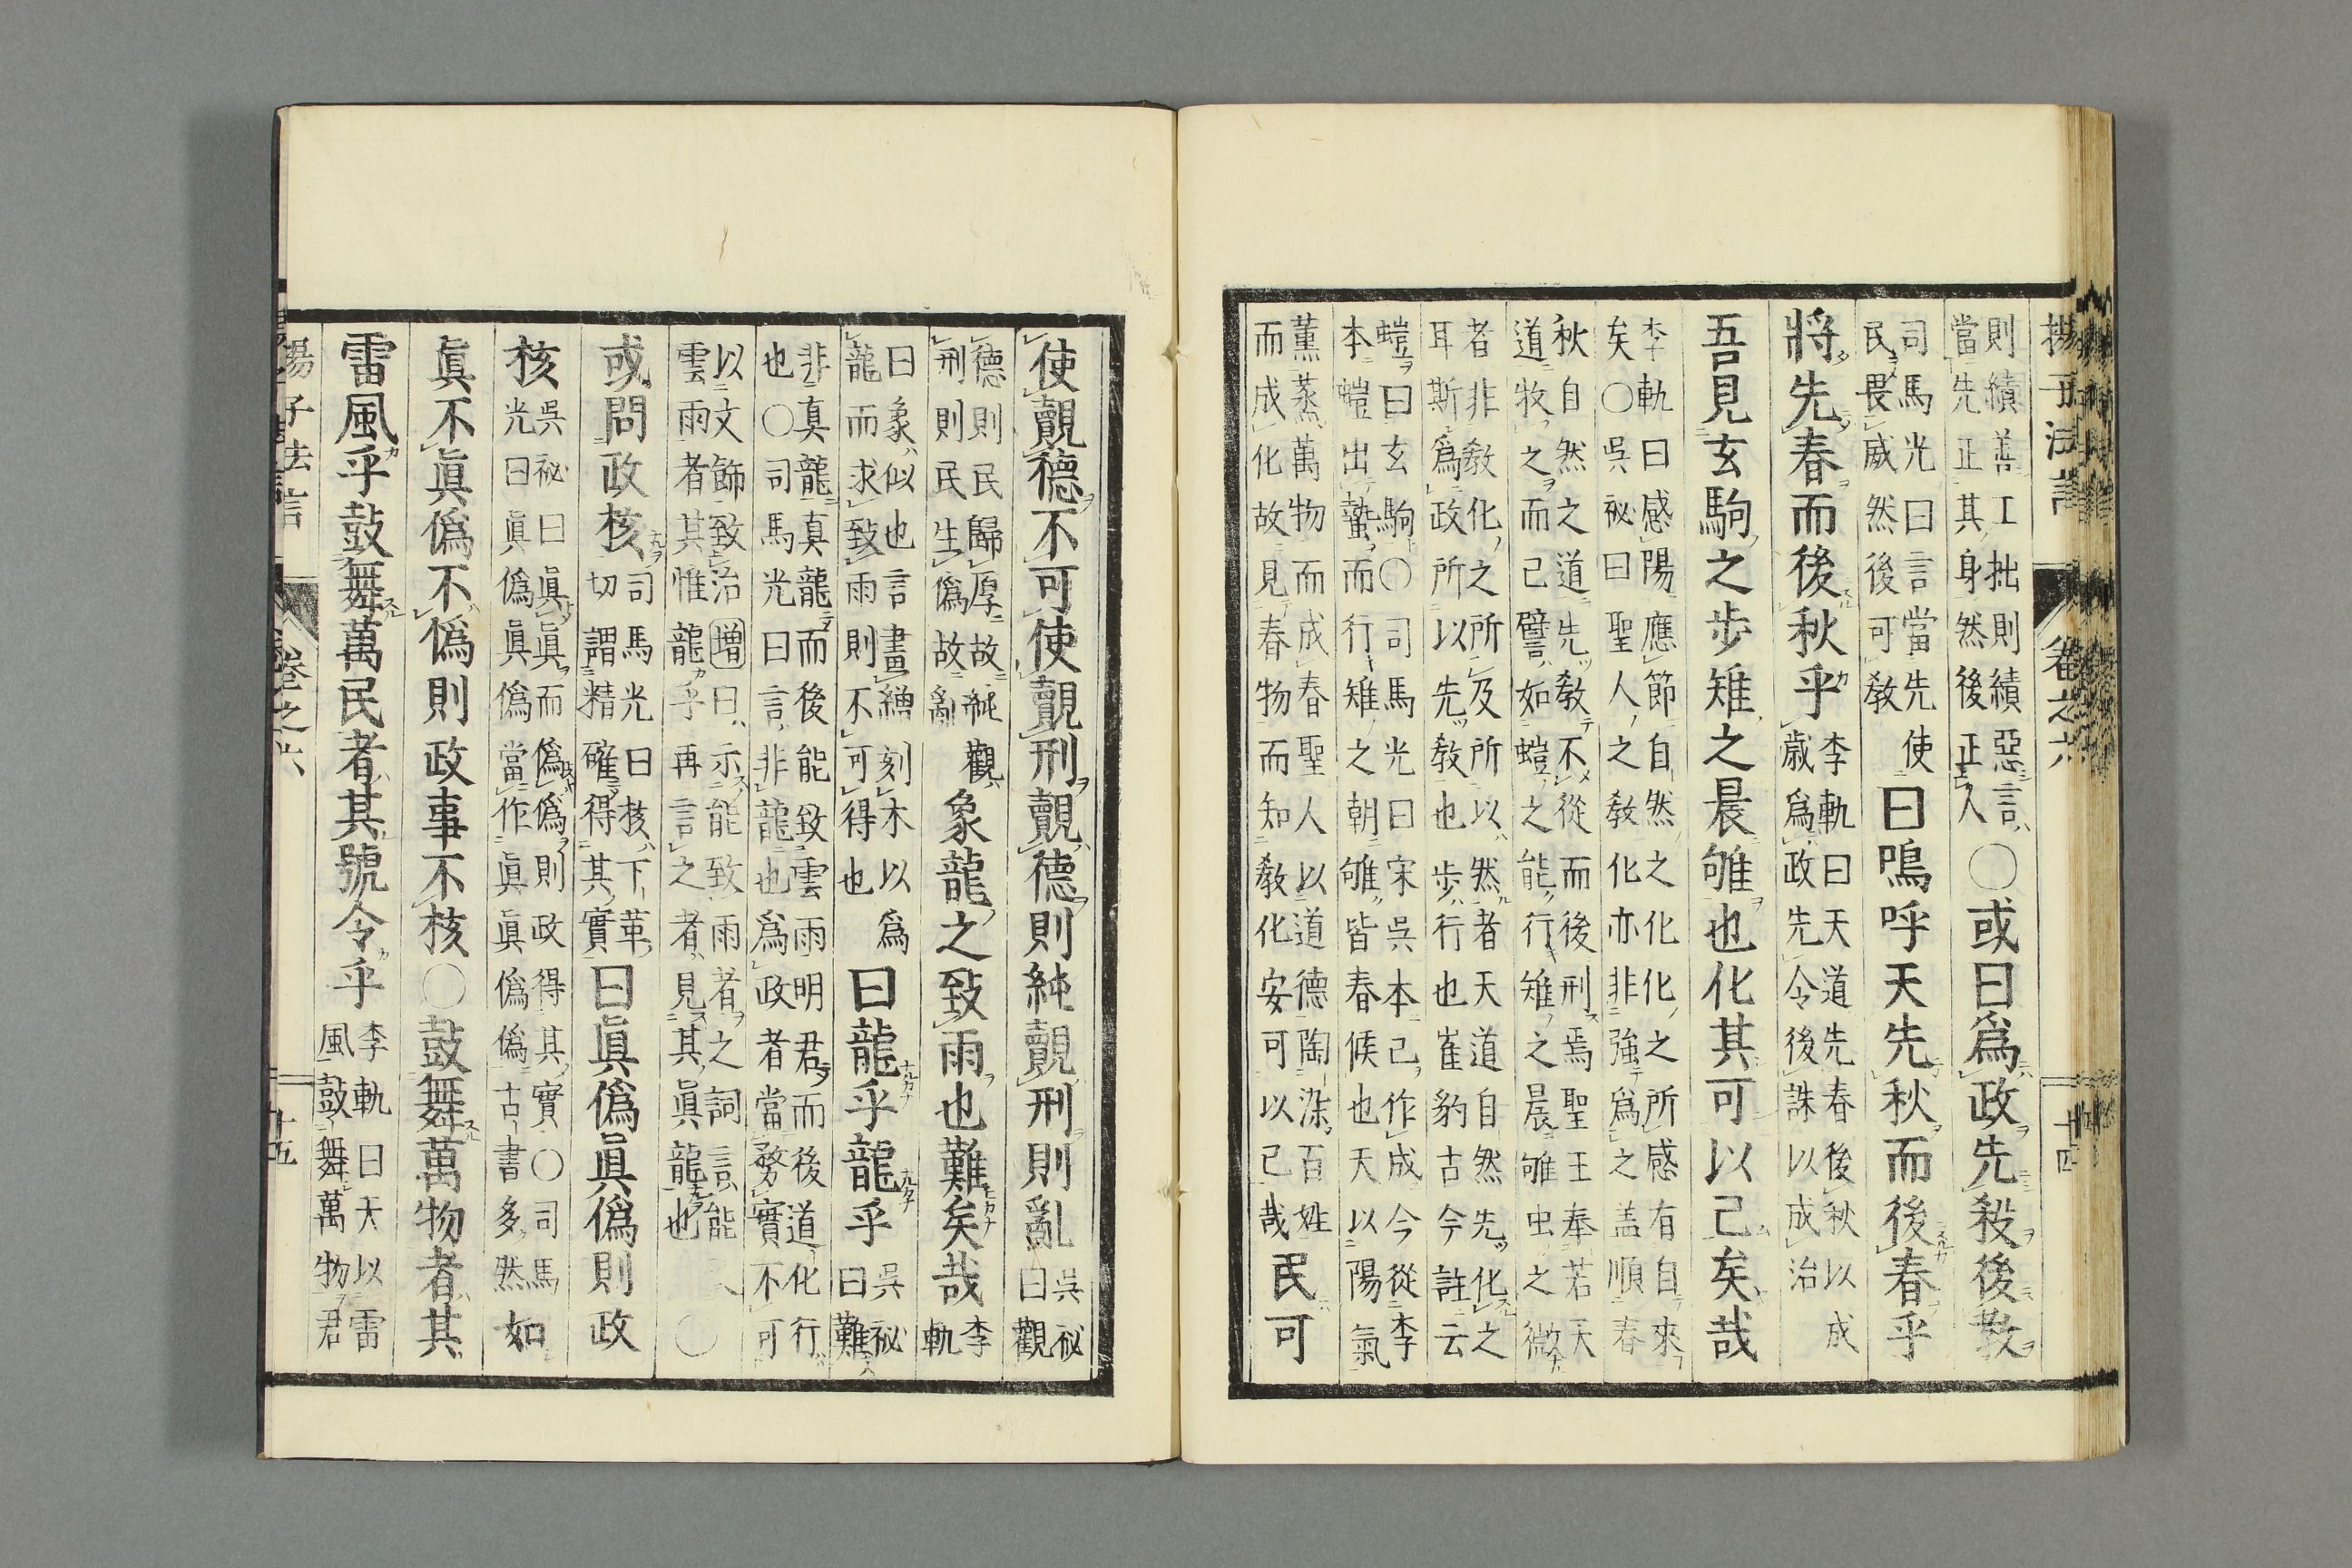 揚子法言 卷之六 十四
則績善工拙則績惡言
當先正其身然後正人
○或曰爲政先殺後敎
司馬光曰言當先使
民畏威然後可敎
曰嗚呼天先秋而後春乎
將先春而後秋乎
李軌曰天道先春後秋以成
歲爲政先令後誅以成治
吾見玄駒之步雉之晨雊也化其可以已矣哉
李軌曰感陽應節自然之化化之所感有自來
矣○吳祕曰聖人之敎化亦非強爲之盖順春
秋自然之道先敎不從而後刑焉聖王奉若天
道牧之而已譬如螘之能行雉之晨雊虫之微
者非敎化之所及所以然者天道自然先化之
耳斯爲政所以先敎也步行也崔豹古今註云
螘曰玄駒○司馬光曰宋吳本已作成今從李
本螘出蟄而行雉之朝雊皆春候也天以陽氣
薰蒸萬物而成春聖人以道德陶染百姓
而成化故見春物而知敎化安可以已哉
民可
使覿德不可使覿刑覿德則純覿刑則亂
吳祕
曰觀
德則民歸厚故純觀
刑則民生僞故亂
象龍之致雨也難矣哉
李
軌
曰象似也言畫繒刻木以爲
龍而求致雨則不可得也
曰龍乎龍乎
吳祕
曰難
非真龍真龍而後能致雲雨明君而後道化行
也○司馬光曰言非龍也爲政者當務實不可
以文飾致治增曰示能致雨者之詞言能
雲雨者其惟龍乎再言之者見其眞龍也
○
或問政核
司馬光曰核下革
切謂精確得其實
曰眞僞眞僞則政
核
吳祕曰眞眞而僞僞則政得其實○司馬
光曰眞僞眞僞當作眞眞僞僞古書多然
如
眞不眞僞不僞則政事不核○鼓舞萬物者其
雷風乎鼓舞萬民者其號令乎
李軌曰天以雷
風鼓舞萬物君
揚子法言 卷之六 十五